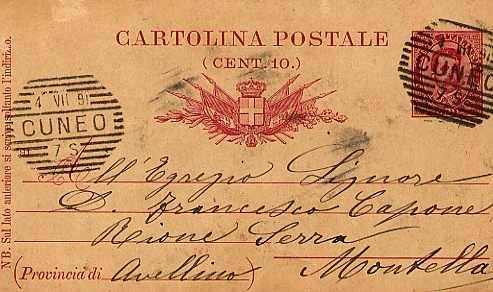 CARTOLINA POSTALE
(CENT. 10.)
CUNEO
4 VII 91
CUNEO
7 S
7 S
All'Egregio Signore
D. Francesco Capone
Rione Serra
Montella
(Provincia di Avellino)
NB. Sul lato anteriore si scrive soltanto l'indirizzo.